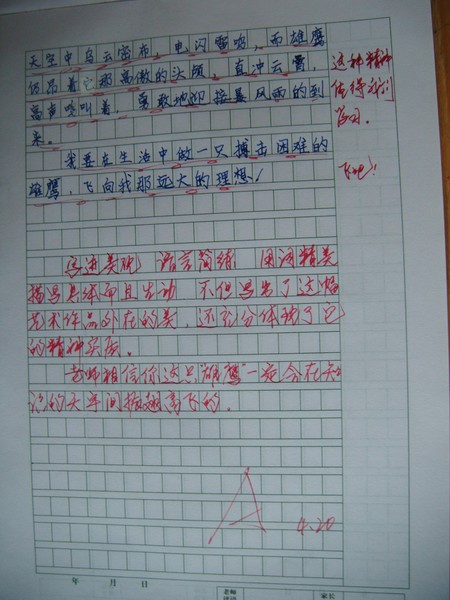 天空中乌云密布，电闪雷鸣，而雄鹰
仍昂着它那高傲的头颅，直冲云霄，
高声唳叫着，勇敢地迎接暴风雨的到
来。
我要在生活中做一只搏击困难的
雄鹰，飞向我那远大的理想！
这种精神
值得我们
学习。
飞吧！
语言简练 用词精美
描写具体而且生动 不但写出了这幅
艺术作品外在的美，还充分体现了它
的精神实质。
老师相信你这只"雄鹰"一定会在知
识的天宇间振翅高飞的。
A
4.20
年 月 日
老师
评语
家长